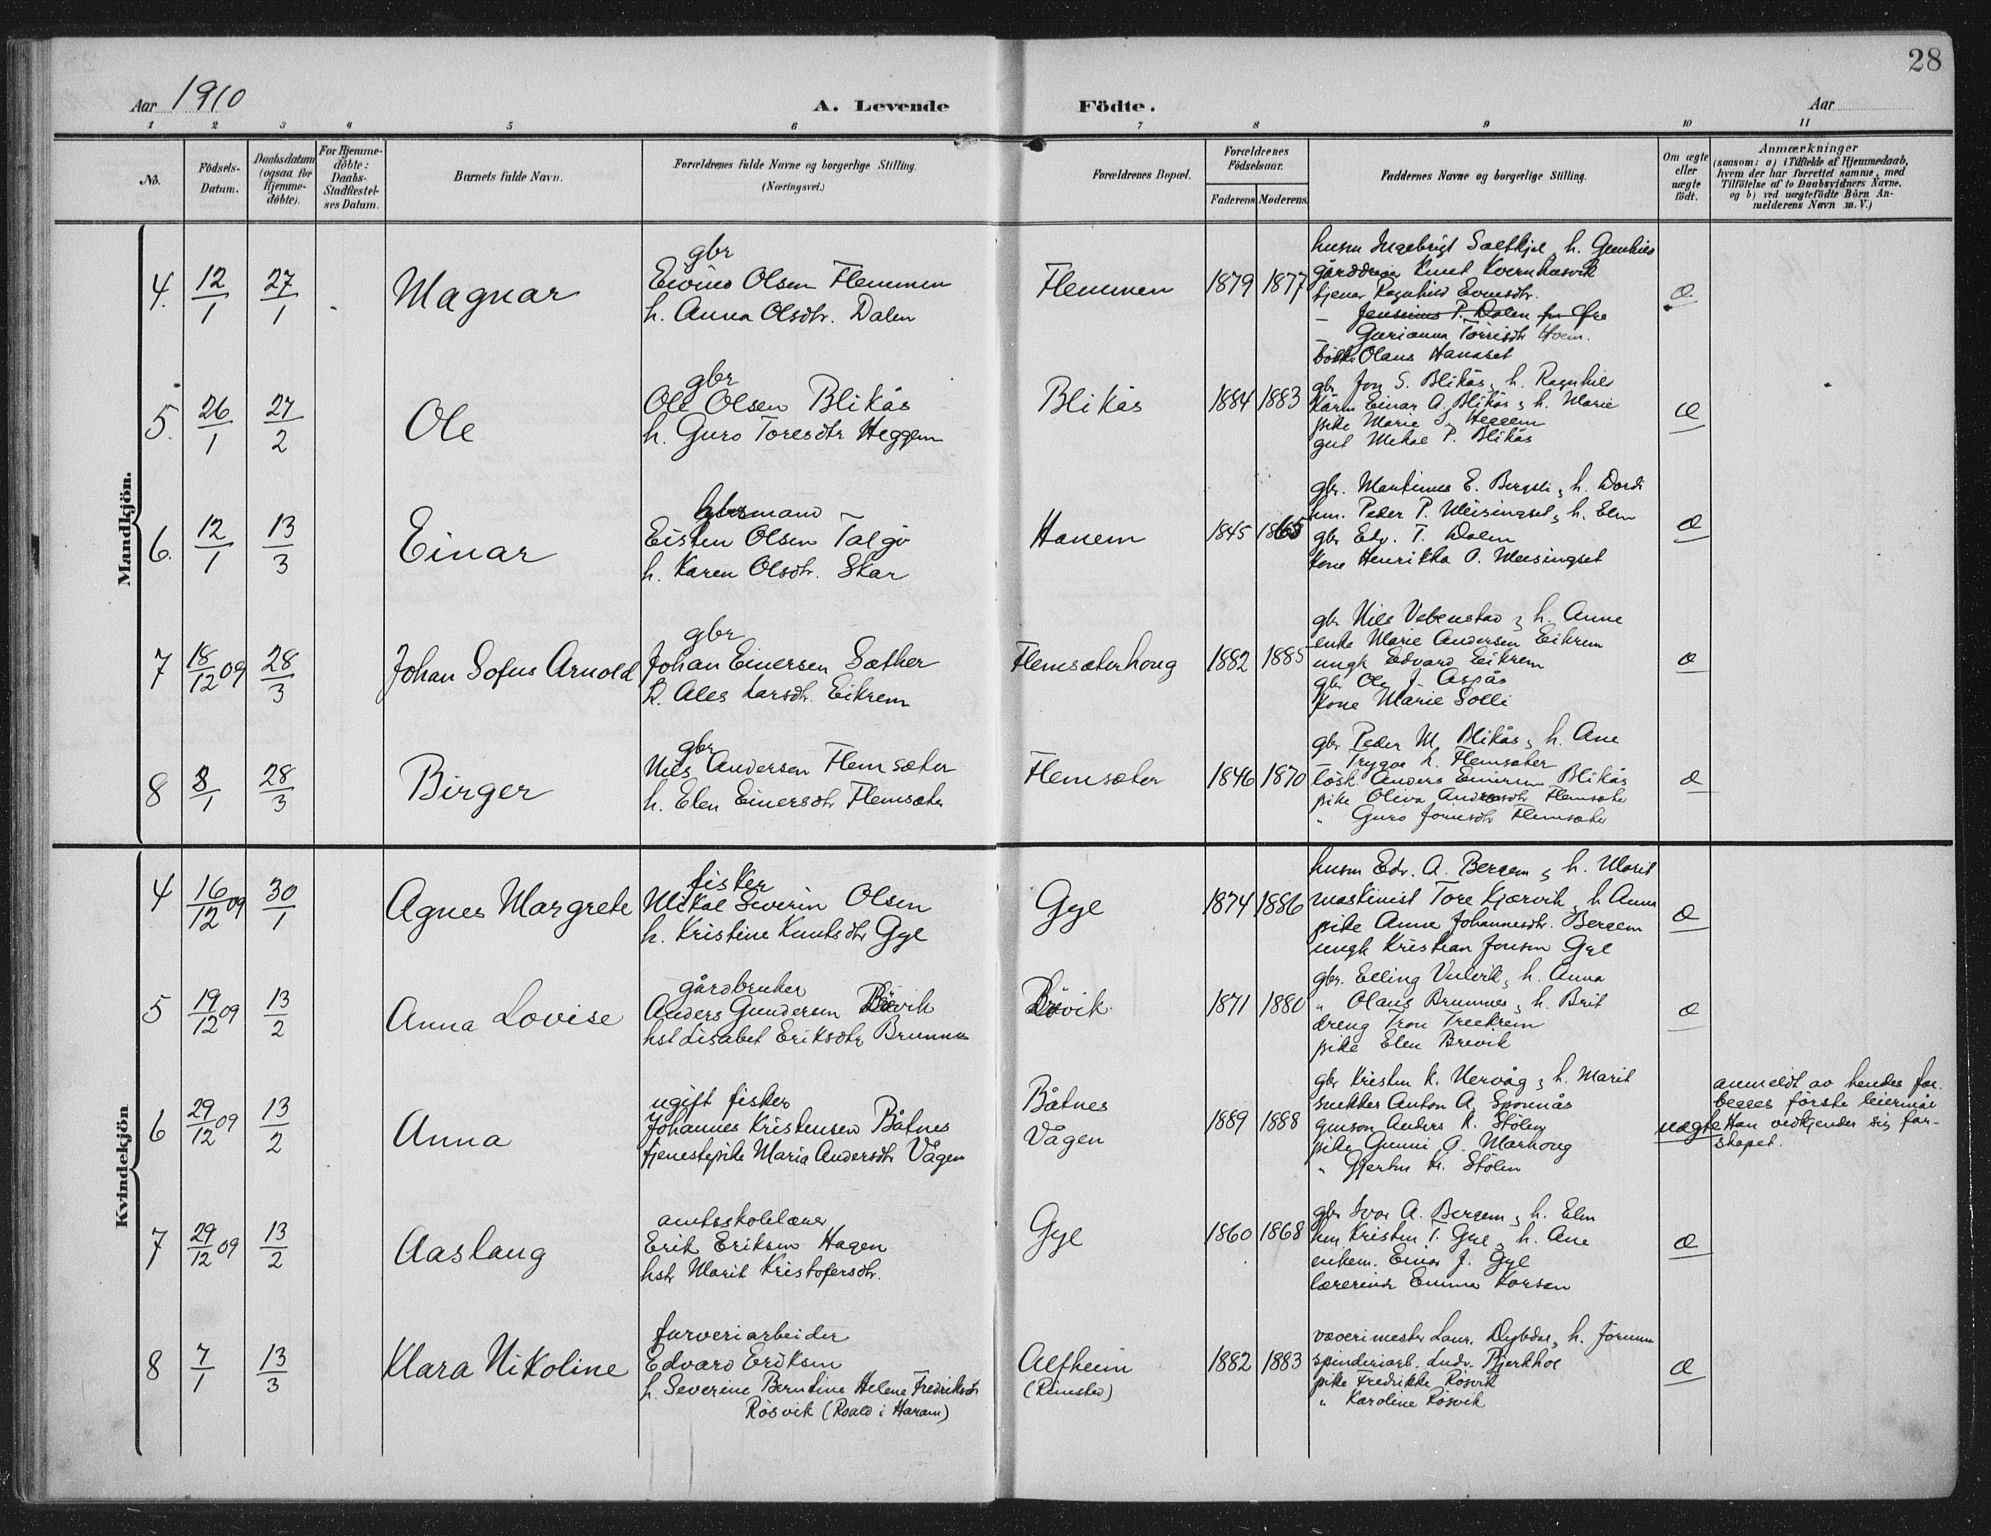 28
Aar 1910
A. Levende Födte.
Aar
1 2 3 4 5 6 7 8 9 10 11
No.
Födsels-Datum.
Daabsdatum (ogsaa for Hjemme-döbte).
For Hjemme-döbte: Daabs-Stadfæstel-ses Datum.
Barnets fulde Navn.
Forældrenes fulde Navne og borgerlige Stilling.
(Næringsvei.)
Forældrenes Bopæl.
Forældrenes Födselsaar.
Faderens Moderens
Faddernes Navne og borgerlige Stilling.
Om ægte eller uægte födt.
Anmærkninger
(saasom: a) i Tilfælde af Hjemmedaab,
hvem der har forrettet samme, med
Tilföielse af to Daabsvidners Navne,
og b) ved uægtefödte Börn An-
melderens Navn m. V.)
Mandkjön.
4. 12/1 27/1 Magnar
gbr
Eivind Olsen Flemmen
h. Anna Olsdtr. Dalen
Flemmen 1879 1877
husm Ingebrigt h. Gunhild
Knut Kvernhusvik
tjener Ragnhild
Jensinus P. Dalen
Gurianna Hoem.
Olaus Hanaset
Æ
5. 26/1 27/2 Ole
gbr
Ole Olsen Blikås
h. Guro Toresdtr Heggem
Blikås 1884 1883
gbr Jon S. Blikås, h. Ragnhild
Einar A. Blikås, h. Marie
pike Marie Heggem
gut Mekal P. Blikås
Æ
6. 12/1 13/3 Einar
husmand
Eisten Olsen Talgö
h. Karen Olsdtr. Skar
Hanem 1845 1865
gbr. Martinus E. Bergsli, h. Dordi
hm. Peder P. Meisingset, h. Elen
gbr Edv. T. Dalen
kone Henrikka O. Meisingset
Æ
7 18/12 09 28/3 Johan Sofus Arnold
gbr
Johan Einersen Sæther
h. Ales Larsdtr. Eikrem
Flemsæterhoug 1882 1885
gbr Nils Vebenstad, h. Anne
enke Marie Andersen Eikrem
ungk Edvard Eikrem
gbr Ole J. Aspås
kone Marie Solli
Æ
8 8/1 28/3 Birger
gbr
Nils Andersen Flemsæter
h. Elen Einersdtr Flemsæter
Flemsæter 1846 1870
gbr Peder M. Blikås, h. Ane
– Trygve L. Flemsæter
løsk. Anders Einersen Blikås
pike Oliva Andersdtr Flemsæter
" Guro Jonsdtr Flemsæter
Æ
Kvindekjön
4 16/12 09 30/1 Agnes Margrete
fisker
Mikal Severin Olsen
h. Kristine Knutsdtr Gyl
Gyl 1874 1886
husm Edv. A. Bergem, h. Marit
maskinist Tore Kjørvik, h Anna
pike Anne Johannesdtr. Bergem
ungk Kristian Jonsen Gyl
Æ
5 19/12 09 13/2 Anna Lovise
gårdbruker
Anders Gundersen Brevik
hst Lisabet Eriksdtr Brunnes
Brevik 1871 1880
gbr. Elling Vulvik, h. Anna
" Olaus Brunnes, h. Brit
dreng Tron Treekrem
pike Elen Brevik
Æ
6 29/12 09 13/2 Anna
ugift fisker
Johannes Kristensen Båtnes
tjenestepike Maria Andersdtr Vågen
Båtnes
Vågen
1889 1888
gbr Kristen K. Nervåg, h. Marit
snekker Anton A. Sponnås
Anders K. Stölen
pike Gunni A. Marhoug
" Gjertru Kr. Stölen
uægte
anmeldt av hendes far.
begges förste leiermål
Han vedkjender sig far-
skapet.
7 29/12 09 13/2 Aaslaug
amtsskolelærer
Erik Eriksen Hagen
hstr Marit Kristofersdtr.
Gyl 1860 1868
gbr Ivar A. Bergem, h. Elen
hm Kristen T. Gyl, h. Ane
enkem. Einar J. Gyl
lærerinde Emma Larsen
Æ
8 7/1 13/3 Klara Nikoline
farveriarbeider
Edvard Eriksen
h. Severine Berntine Helene Fredriksdtr
Rösvik (Roald i Haram)
Alfheim
(Rimstad)
1882 1883
væverimester Laur. Dybdal, h. Jörunn
spinderiarb. Ludv. Bjerkhol
pike Fredrikke Rösvik
" Karoline Rösvik
Æ